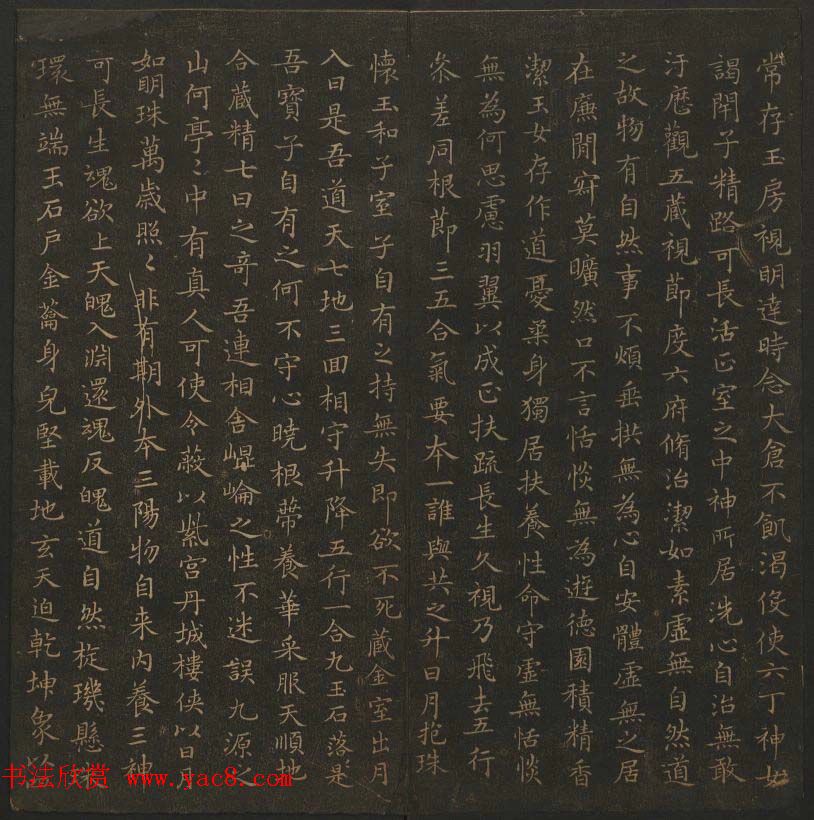 常存玉房視明達時念大倉不飢渴役使六丁神女
謁閇子精路可長活正室之中神所居洗心自治無敢
汙歷觀五藏視節度六府脩治潔如素虛無自然道
之故物有自然事不煩垂拱無為心自安體虛無之居
在廉閒寂莫曠然口不言恬惔無為遊德園積精香
潔玉女存作道憂柒身獨居扶養性命守虛無恬惔
無為何思慮羽翼以成正扶疏長生久視乃飛去五行
条差同根節三五合氣要本一誰與共之升日月抱珠
懷玉和子室子自有之持無失即欲不死藏金室出月
入日是吾道天七地三回相守升降五行一合九玉石落是
吾寶子自有之何不守心曉根蔕養華采服天順地
合藏精七日之奇吾連相舍崐崘之性不迷誤九源之
山何亭〻中有真人可使令蔽以紫宮丹城樓俠以日月
如明珠萬歲照〻非有期外本三陽物自来內養三神
可長生魂欲上天魄入淵還魂反魄道自然旋璣懸珠
環無端玉石戶金籥身皃堅載地玄天迫乾坤象以
书法欣赏 www.yac8.com